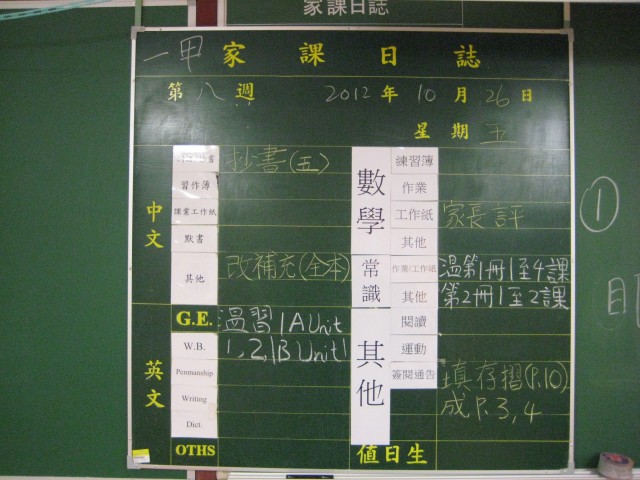 家課日誌
一甲 家課日誌
第八週 2012年10月26日
星期五
中文
抄書(五)
習作簿
課業工作紙
默書
其他 改補充(全本)
英文
G.E. 溫習 1A Unit
W.B. 1,2,1B Unit 1
Penmanship
Writing
Dict.
OTHS
數學
練習簿
作業
工作紙 家長評
其他
常識
作業/工作紙 溫第1冊1至4課
其他 第2冊1至2課
其他
閱讀
運動
簽閱通告 填存摺(P.10)
成P.3,4
值日生
①